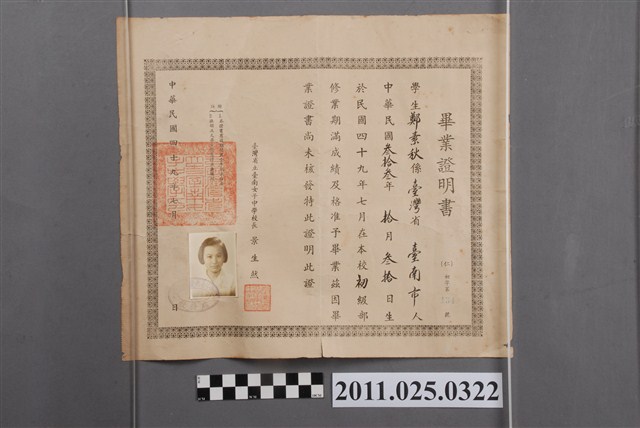 畢業證明書
學生鄭素秋係臺灣省 臺南市人
中華民國叁拾叁年 拾月 叁拾日生
於民國四十九年七月在本校初級部
修業期滿成績及格准予畢業茲因畢
業證書尚未核發特此證明此證
臺灣省立臺南女子中學校長 葉生
中華民國四十九年七月 日
號
2011.025.0322